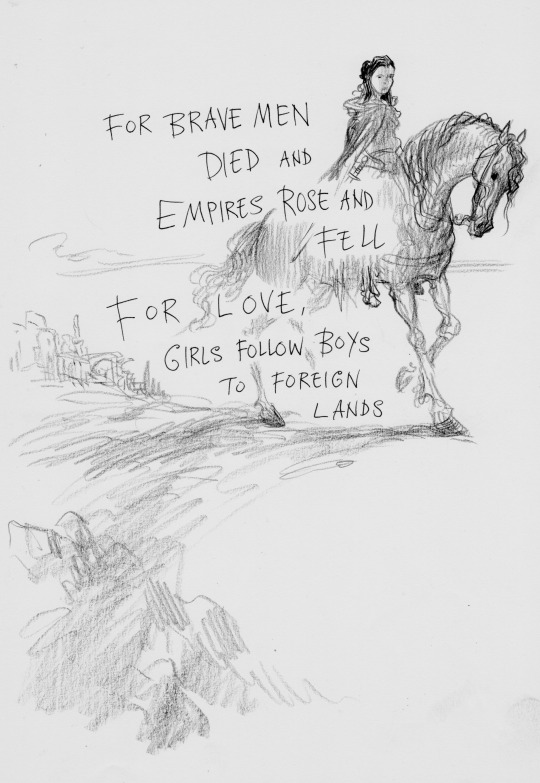 FOR BRAVE MEN
DIED AND
EMPIRES ROSE AND
FELL
FOR LOVE,
GIRLS FOLLOW BOYS
TO FOREIGN
LANDS